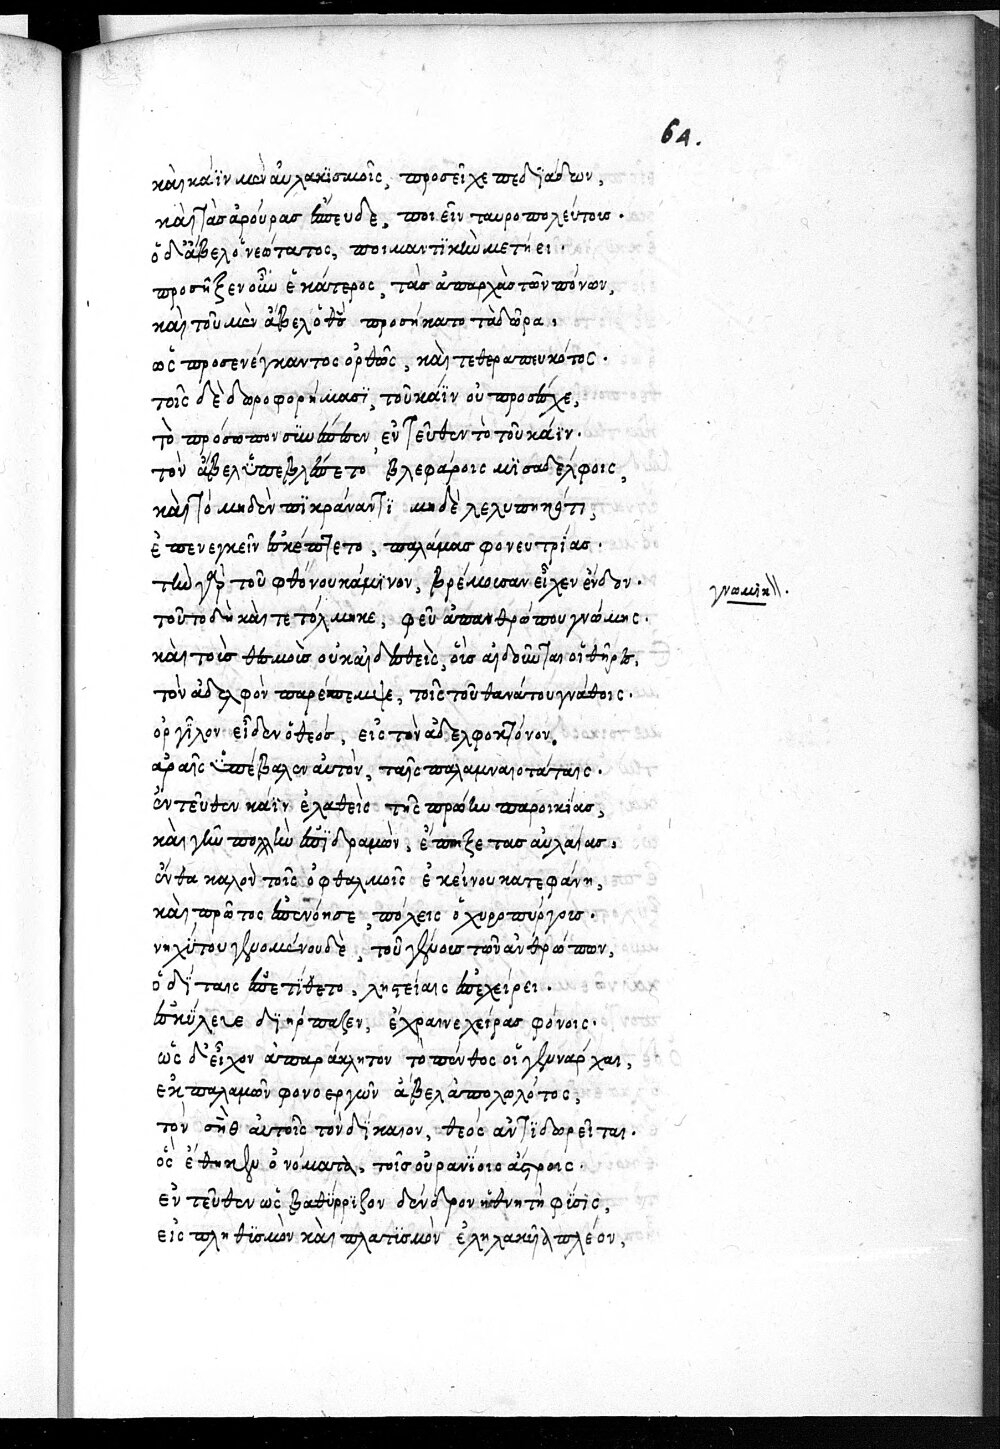 64.
καὶ κάϊν μὲν αὐλακϊσμοῖς, προσεῖχε πεδϊάδων,
καὶ τὰς ἀρούρας ἔσπευδε, ποιεῖν ταυροπολεύτοις·
ὁ δ' ἄβελ ὁ νεώτατος, ποιμαντϊκὴν μετήει·
προσῆξεν οὖν ἑκάτερος, τὰς ἀπαρχὰς τῶν πόνων,
καὶ τοῦ μὲν ἄβελ ὁ θς προσήκατο τὰ δῶρα,
ὡς προσενέγκαντος ὀρθῶς, καὶ τεθεραπευκότος·
τοῖς δὲ δωροφορήμασϊ, τοῦ κάϊν οὐ προσέσχε,
τὸ πρόσωπον συνέπεσεν, ἐντεῦθεν τὸ τοῦ κάϊν·
τὸν ἄβελ ὑπεβλέπετο, βλεφάροις μϊσαδέλφοις,
καὶ τῷ μηδὲν πϊκράναντϊ μηδὲ λελυπηκότι,
ἐπενεγκεῖν ἐσκέπτετο, παλάμας φονευτρίας·
τὴν γὰρ τοῦ φθόνου κάμϊνον, βρέμουσαν εἶχεν ἔνδον·
γνωμικ
τοῦτο δὴ καὶ τετόλμηκε, φεῦ ἀπανθρώπου γνώμης·
καὶ τοὺς θεσμοὺς οὐκ αἰδεσθεὶς, οὓς αἰδοῦνται οἱ θῆρες,
τὸν ἀδελφὸν παρέπεμψε, τοῖς τοῦ θανάτου γνάθοις·
ὀργῖλον εἶδεν ὁ θεός, εἰς τὸν ἀδελφοκτόνον,
ἀραῖς ὑπέβαλεν αὐτὸν, ταῖς παλαμναιοτάταις·
ἐντεῦθεν κάϊν ἐλαθεὶς τῆς πρώην παροικίας,
καὶ γῆν πολλὴν ἐπϊδραμὼν, ἔπηξε τὰς αὐλαίας,
ἔνθα καλὸν τοῖς ὀφθαλμοῖς ἐκείνου κατεφάνη,
καὶ πρῶτος ἐπενόησε, πόλεις ὀχυροπύργους·
νηχύτου γενομένου δὲ, τοῦ γένους τῶν ἀνθρώπων,
ὁδΐταις ἐπετΐθετο, λῃστείαις ἐπεχείρει·
ἐσκύλευε δϊήρπαζεν, ἔχραινε χεῖρας φόνοις·
ὡς δ' εἶχον ἀπαράκλητον τὸ πένθος οἱ γενάρχαι,
ἐκ παλαμῶν φονοεργῶν ἄβελ ἀπολωλότος,
τὸν σὴθ αὐτοῖς τὸν δΐκαιον, θεὸς ἀντϊδωρεῖται·
ὃς ἔθηκεν ὀνόματα, τοῖς οὐρανΐοις ἄστροις·
ἐντεῦθεν ὡς βαθύρρϊζον δένδρον ἡ θνητὴ φύσις,
εἰς πληθϊσμὸν καὶ πλατϊσμὸν ἐληλακυῖα πλέον,